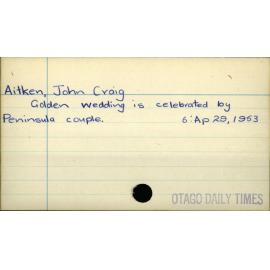 Aitken, John Craig
Golden wedding is celebrated by
Peninsula couple. 6: Ap 29, 1963
OTAGO DAILY TIMES